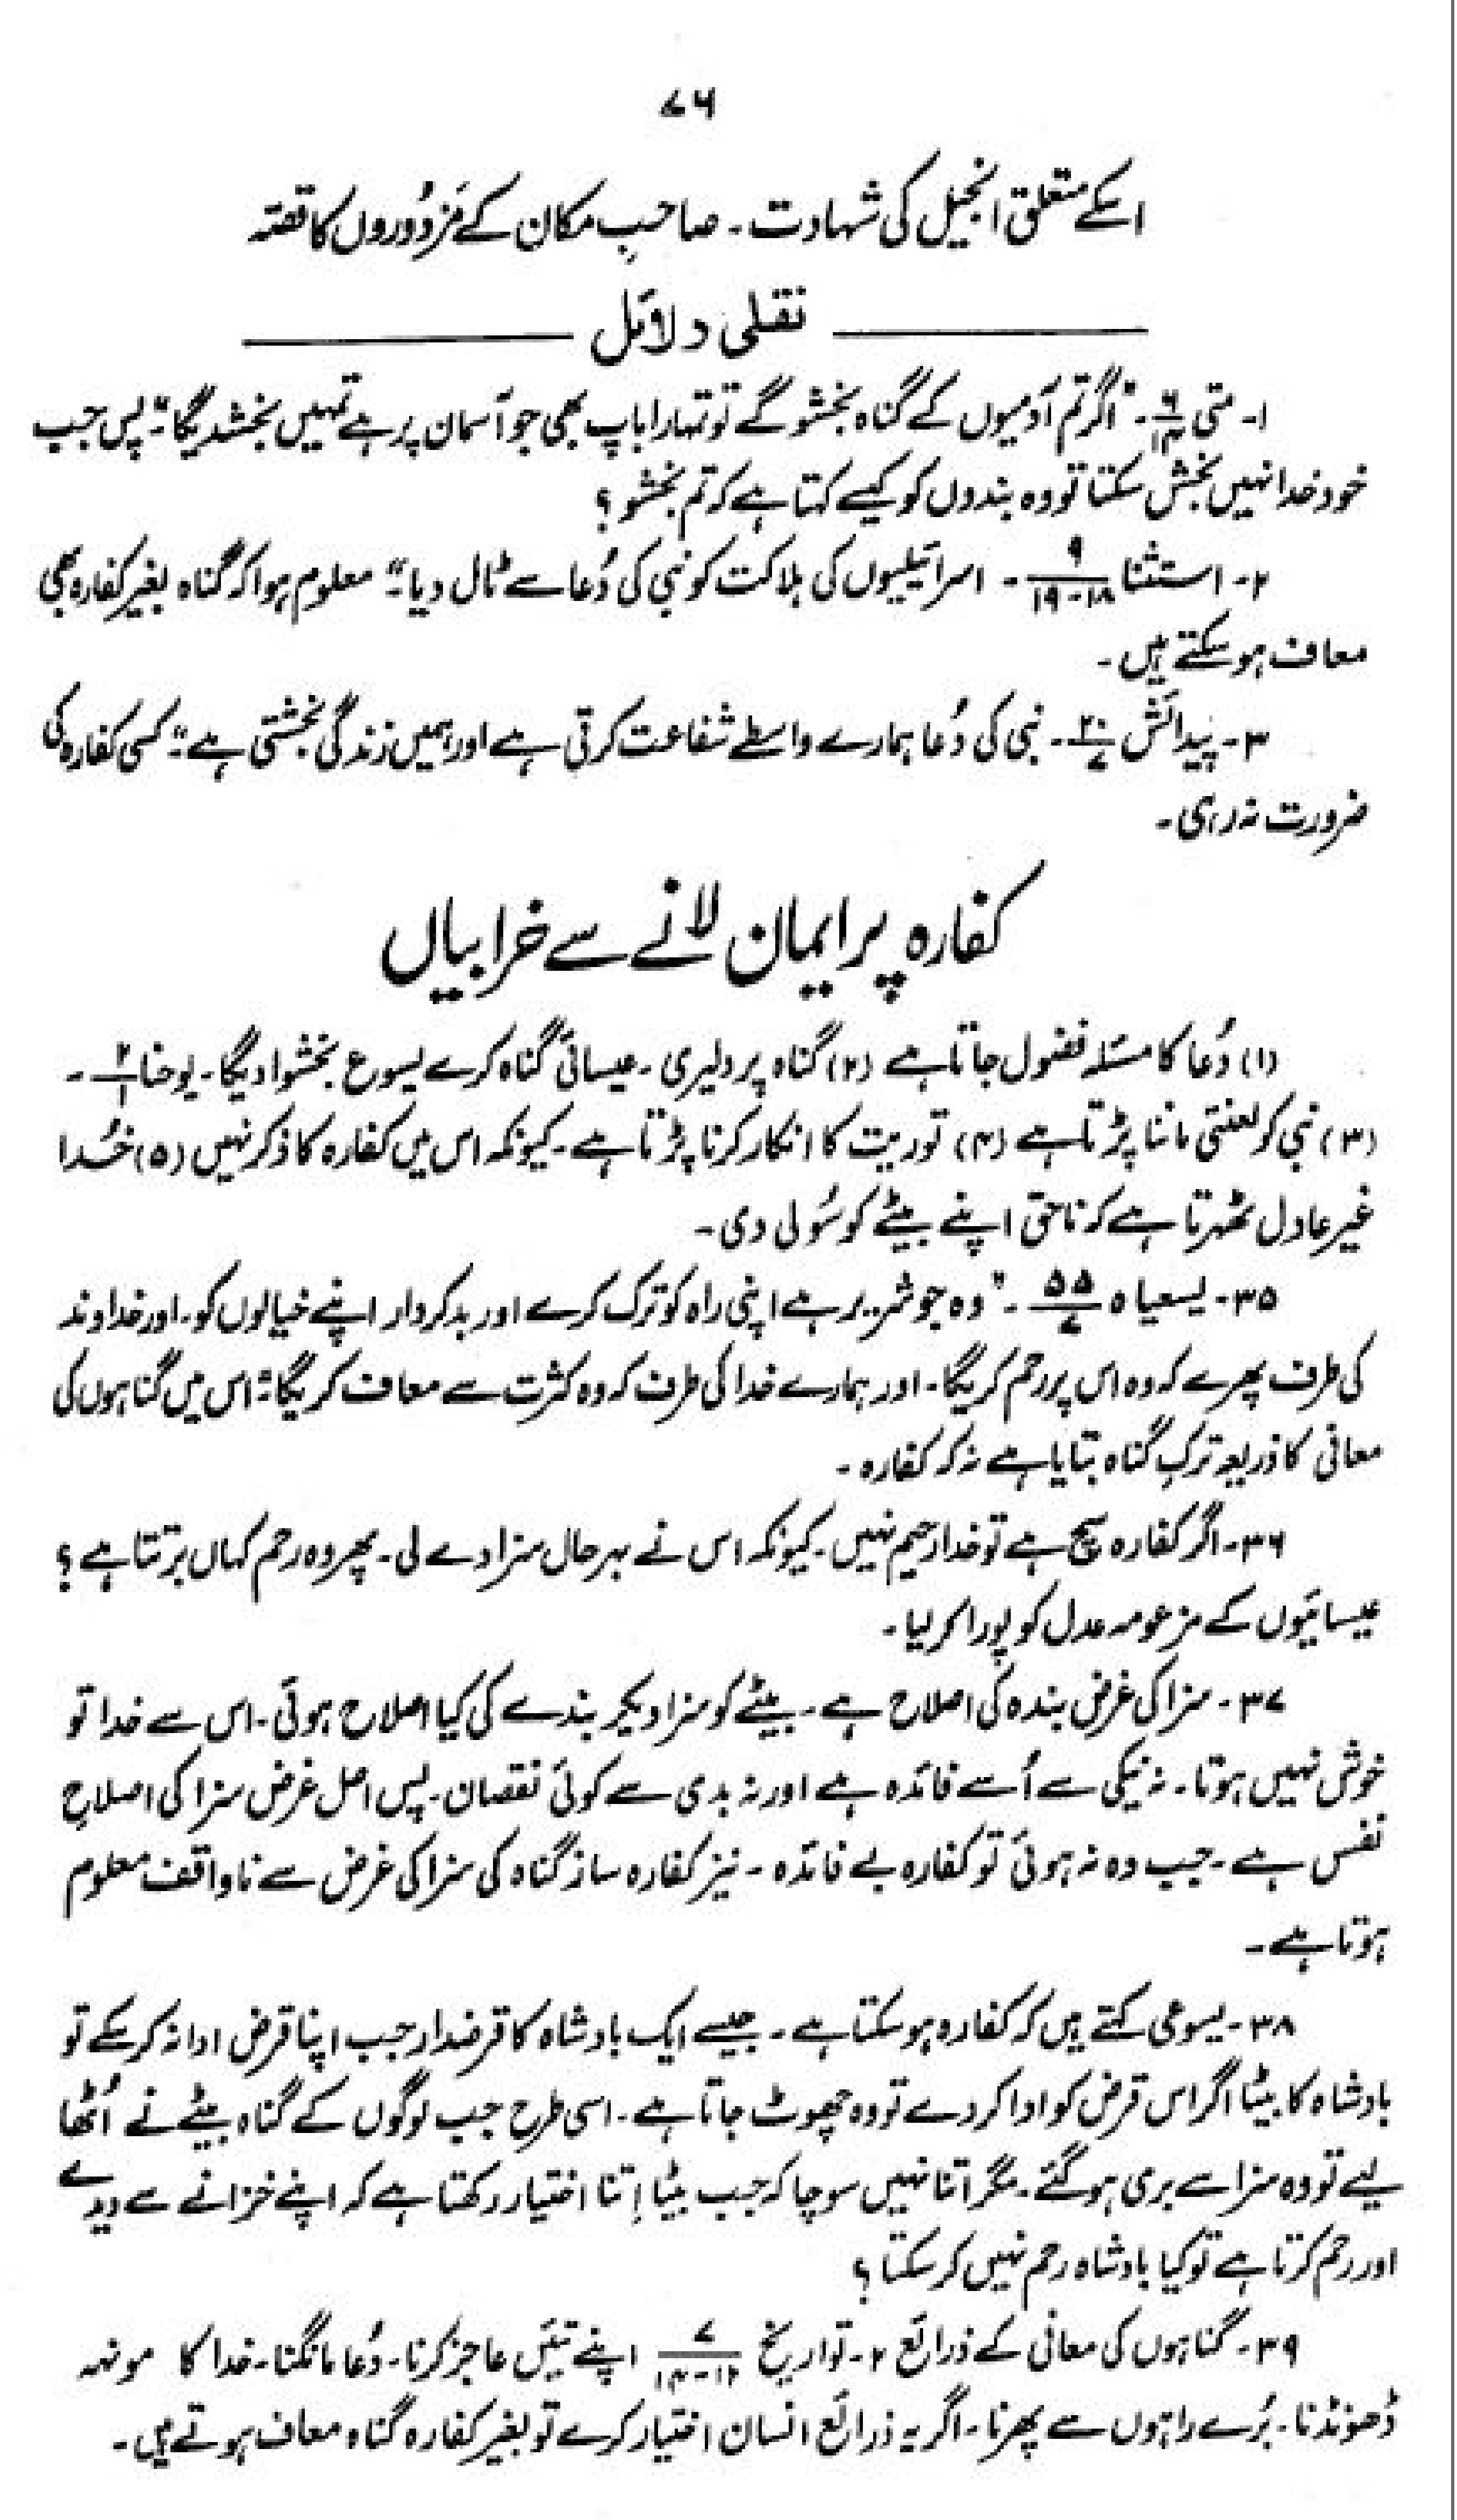 ۷۶
اسکے متعلق انجیل کی شہادت۔ صاحبِ مکان کے مَزدُوروں کا قصّہ
نقلی دلائل
۱۔ متی ۶/۱۴۔ "اگر تم آدمیوں کے گناہ بخشو گے تو تمہارا باپ بھی جو آسمان پر ہے تمہیں بخشدیگا۔" پس جب
خود خدا نہیں بخش سکتا تو وہ بندوں کو کیسے کہتا ہے کہ تم بخشو؟
۲۔ استثنا ۹/۱۸-۱۹۔ اسرائیلیوں کی ہلاکت کو نبی کی دُعا سے ٹال دیا۔" معلوم ہوا کہ گناہ بغیر کفارہ بھی
معاف ہو سکتے ہیں۔
۳۔ پیدائش ۲۰/۷۔ نبی کی دُعا ہمارے واسطے شفاعت کرتی ہے اور ہمیں زندگی بخشتی ہے۔" کسی کفارہ کی
ضرورت نہ رہی۔
کفارہ پر ایمان لانے سے خرابیاں
(۱) دُعا کا مسئلہ فضول جاتا ہے (۲) گناہ پر دلیری۔ عیسائی گناہ کرے یسوع بخشوا دیگا۔ یوحنا ۲/۱۔
(۳) نبی کو لعنتی ماننا پڑتا ہے (۴) توریت کا انکار کرنا پڑتا ہے۔ کیونکہ اس میں کفارہ کا ذکر نہیں (۵) خُدا
غیر عادل ٹھہرتا ہے کہ ناحق اپنے بیٹے کو سُولی دی۔
۳۵۔ یسعیاہ ۵۵/۷۔ "وہ جو شریر ہے اپنی راہ کو ترک کرے اور بدکردار اپنے خیالوں کو۔ اور خداوند
کی طرف پھرے کہ وہ اس پر رحم کریگا۔ اور ہمارے خدا کی طرف کہ وہ کثرت سے معاف کریگا۔" اس میں گناہوں کی
معافی کا ذریعہ ترکِ گناہ بتایا ہے نہ کہ کفارہ۔
۳۶۔ اگر کفارہ سچ ہے تو خدا رحیم نہیں۔ کیونکہ اس نے بہرحال سزا دے لی۔ پھر وہ رحم کہاں برتتا ہے؟
عیسائیوں کے مزعومہ عدل کو پورا کر لیا۔
۳۷۔ سزا کی غرض بندہ کی اصلاح ہے۔ بیٹے کو سزا دیکر بندے کی کیا اصلاح ہوئی۔ اس سے خدا تو
خوش نہیں ہوتا۔ نہ نیکی سے اُسے فائدہ ہے اور نہ بدی سے کوئی نقصان۔ پس اصل غرض سزا کی اصلاحِ
نفس ہے۔ جب وہ نہ ہوئی تو کفارہ بے فائدہ۔ نیز کفارہ ساز گناہ کی سزا کی غرض سے ناواقف معلوم
ہوتا ہے۔
۳۸۔ یسوعی کہتے ہیں کہ کفارہ ہو سکتا ہے۔ جیسے ایک بادشاہ کا قرضدار جب اپنا قرض ادا نہ کر سکے تو
بادشاہ کا بیٹا اگر اس قرض کو ادا کر دے تو وہ چھوٹ جاتا ہے۔ اسی طرح جب لوگوں کے گناہ بیٹے نے اُٹھا
لیے تو وہ سزا سے بری ہو گئے۔ مگر اتنا نہیں سوچا کہ جب بیٹا اِتنا اختیار رکھتا ہے کہ اپنے خزانے سے دیدے
اور رحم کرتا ہے تو کیا بادشاہ رحم نہیں کر سکتا؟
۳۹۔ گناہوں کی معافی کے ذرائع ۲۔ تواریخ ۷/۱۲-۱۴ اپنے تیئں عاجز کرنا۔ دُعا مانگنا۔ خدا کا مونہہ
ڈھونڈنا۔ بُرے راہوں سے پھرنا۔ اگر یہ ذرائع انسان اختیار کرے تو بغیر کفارہ گناہ معاف ہوتے ہیں۔